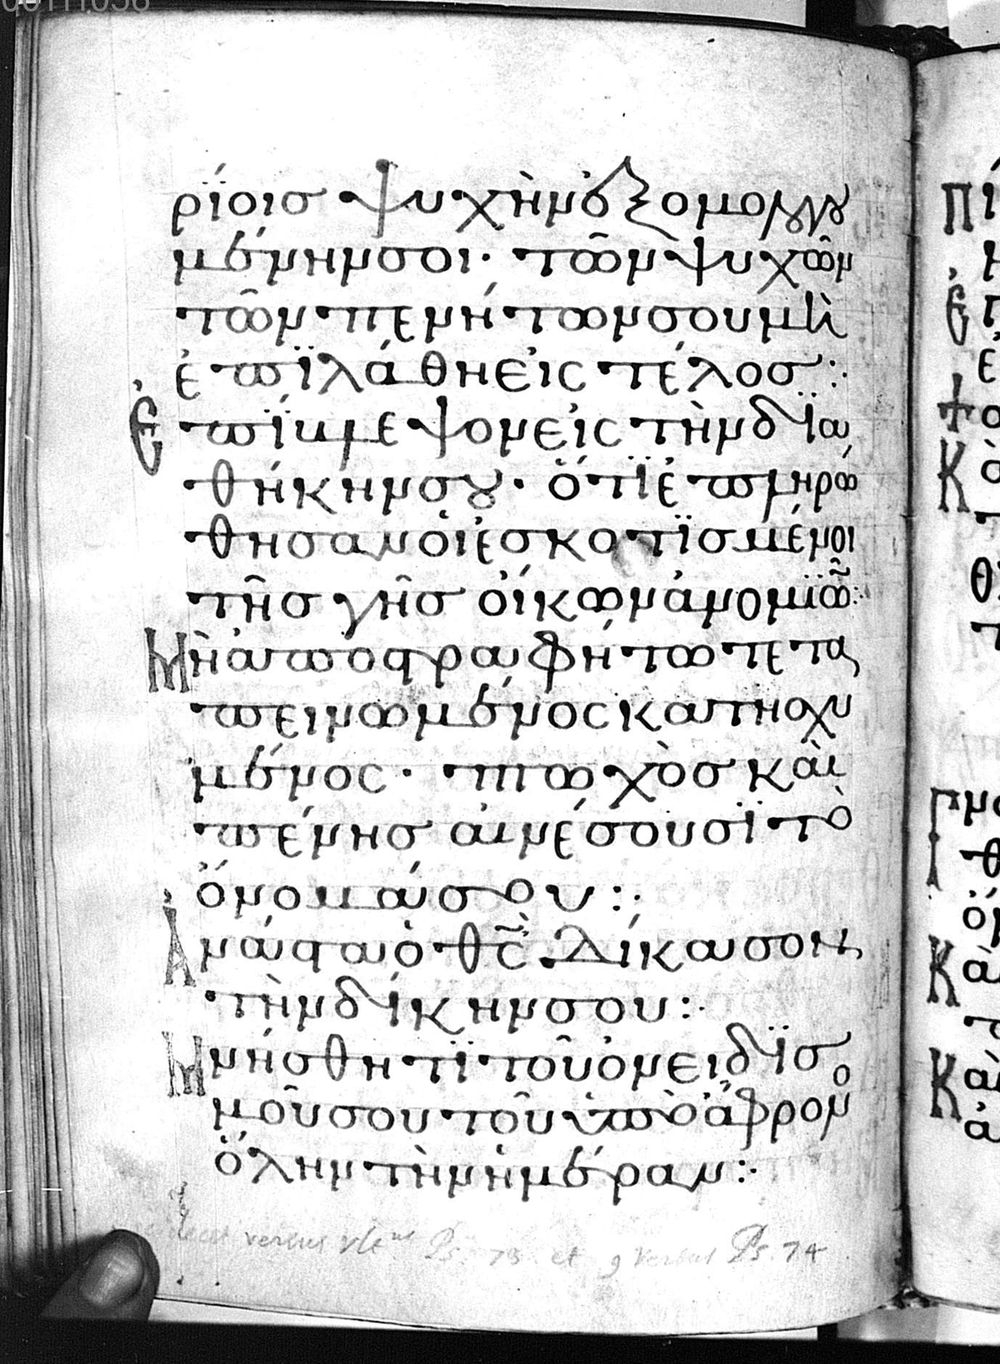 00111058
ρΐοισ ψυχὴν ἐξομολογου
μένην σοι· τῶν ψυχῶν
τῶν πενήτων σου μὴ
ἐπϊλάθη εἰς τέλοσ :·
Ἐπΐβλεψον εἰς τὴν δϊα
θήκην σου· ὅτϊ ἐπληρώ
θησαν ὁι ἐσκοτϊσμένοι
τῆσ γῆσ οἴκων ἀνομϊῶν :·
Μὴ ἀποστραφήτω τετα
πεινωμένος κατησχυ
μένος· πτωχὸσ καὶ
πένησ αινέσουσϊ τὸ
ὄνομά σου :·
Ἀνάστα ὁ θς· δίκασον
τὴν δίκην σου :·
Μνήσθητϊ τοῦ ὀνειδϊσ
μοῦ σου τοῦ ὑπὸ ἄφρονο
ὅλην τὴν ἡμέραν :·
versus Ps. 73 et 9 versus Ps. 74
Πί
Ἐπ
ἐ
Κὰ
Κὰ
Κὰ